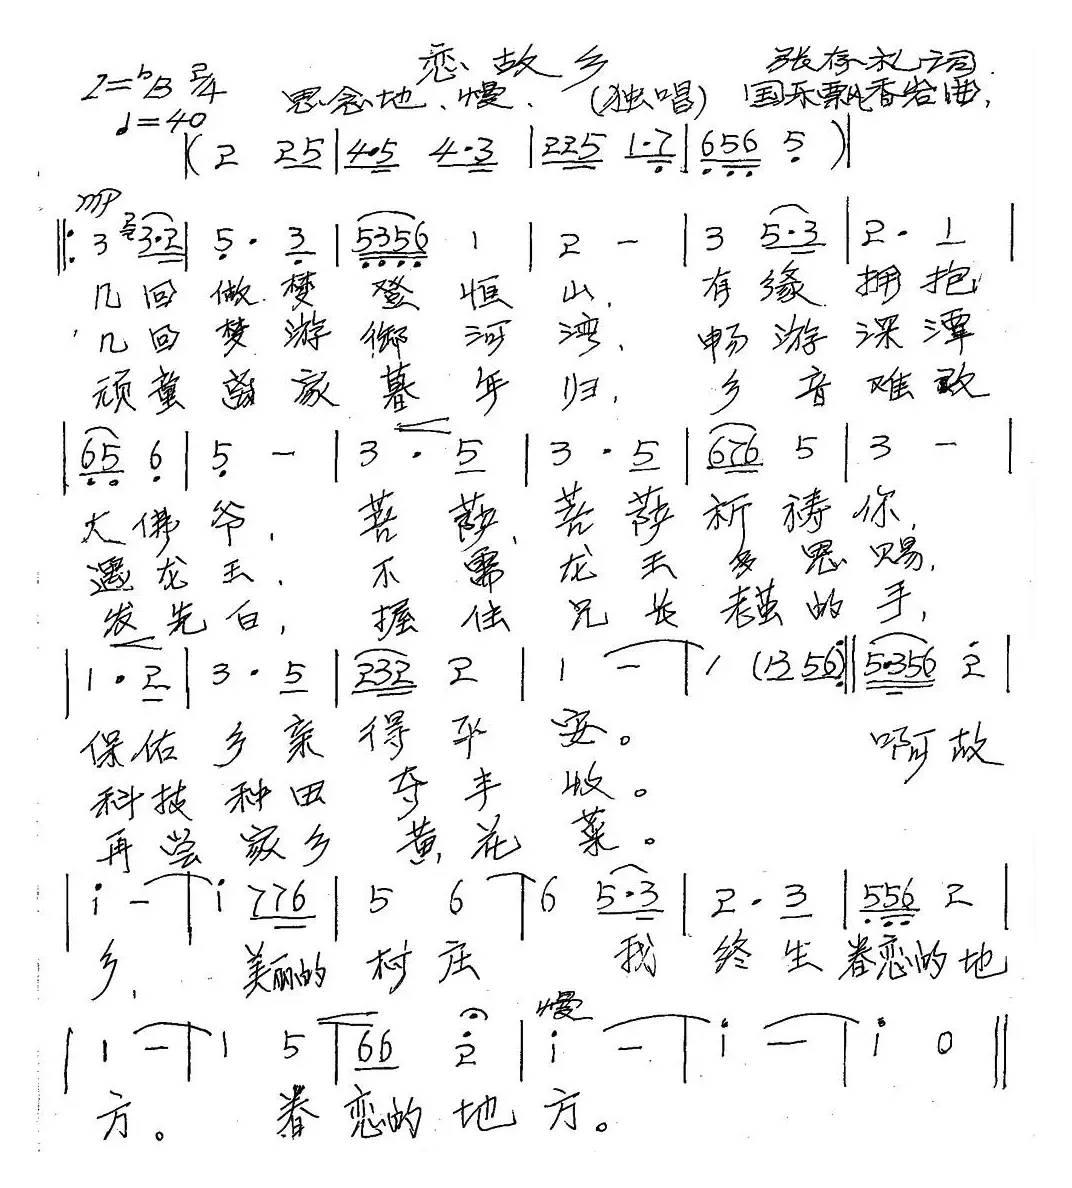 恋故乡 张存礼词
1=ᵇB 2/4 思念地、慢、 (独唱) 国乐飘香岩曲,
♩=40
(2 25|4·5 4·3|225 1·7|656 5)|
mp
‖: 3 3·2|5· 3|5356 1|2 —|3 5·3|2· 1|
几回做梦登恒山, 有缘拥抱
几回梦游御河湾, 畅游深潭
顽童离家暮年归, 乡音难改
|65 6|5 —|3· 5|3· 5|676 5|3 —|
大佛爷, 菩萨,菩萨祈祷你,
遇龙王, 不需龙王多恩赐,
发先白, 握住兄长老茧的手,
|1· 2|3· 5|232 2|1 —|1 (13 56):‖5·356 2|
保佑乡亲得平安。 啊故
科技种田夺丰收。
再尝家乡黄花菜。
|i —|i 776|5 6|6 5·3|2· 3|556 2|
乡, 美丽的村庄 我终生眷恋的地
慢
|1 —|1 5|66 2|i —|i —|i 0‖
方。 眷恋的地方。